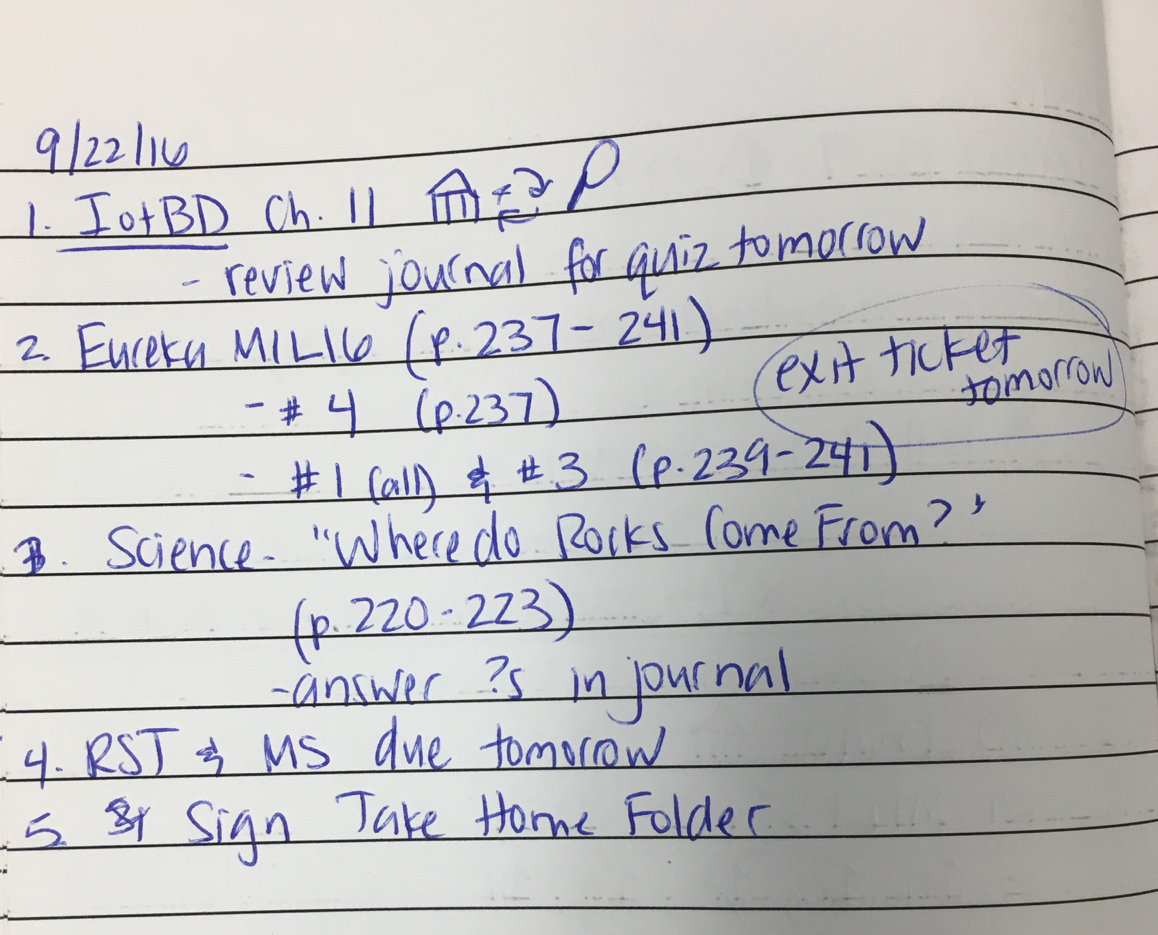 9/22/16
1. IotBD Ch. 11
- review journal for quiz tomorrow
2. Eureka M1L16 (p.237-241)
exit ticket
tomorrow
- #4 (p.237)
- #1 (all) & #3 (p.239-241)
3. Science- "Where do Rocks Come From?"
(p.220-223)
-answer ?s in journal
4. RST & MS due tomorrow
5. Sign Take Home Folder